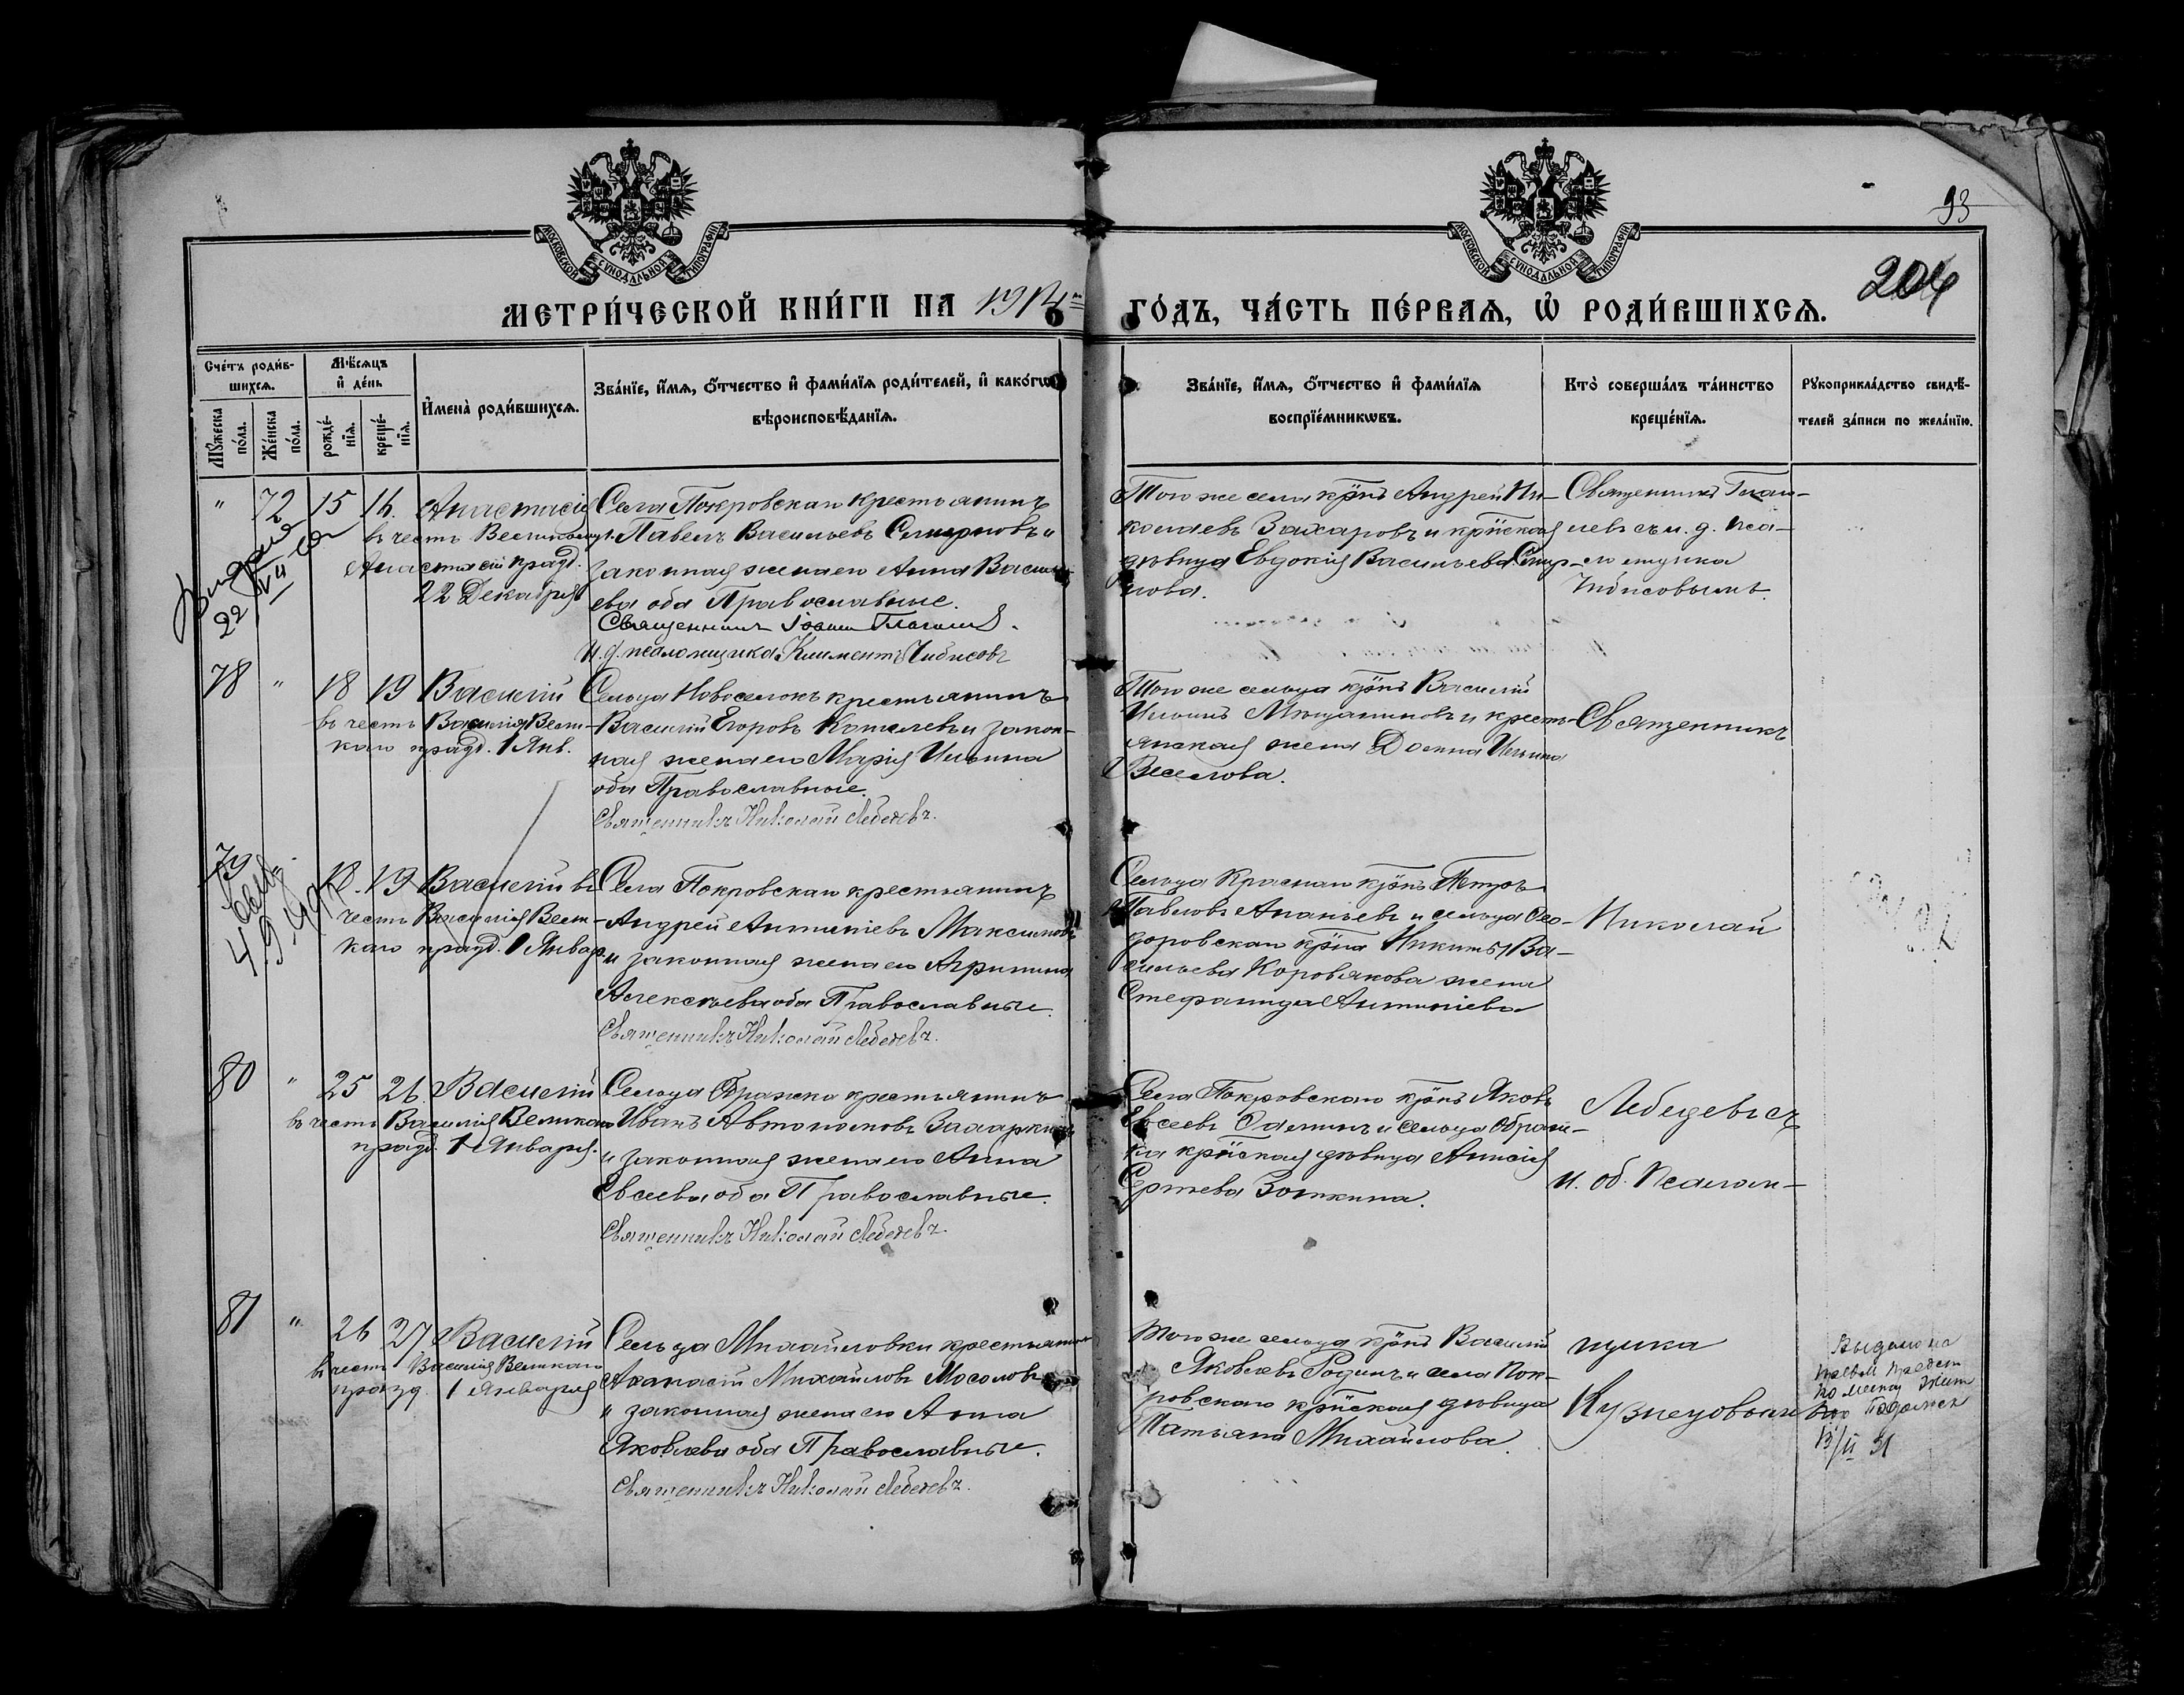 МОСКОВСКОЙ СѴНОДАЛЬНОЙ ТИПОГРАФІИ
МОСКОВСКОЙ СѴНОДАЛЬНОЙ ТИПОГРАФІИ
93
204
МЕТРИ́ЧЕСКОЙ КНИ́ГИ НА 1914
ГО́ДЪ, ЧА́СТЬ ПЕ́РВАѦ, Ѡ҆ РОДИ́ВШИХСѦ.
Сче́тъ роди́в-
шихсѧ.
Мѣ́сѧцъ
и҆ де́нь
Мꙋ́жеска по́ла.
Же́нска по́ла.
рожде́-нїѧ.
креще́-нїѧ.
И҆мена̀ роди́вшихсѧ.
Зва́нїе, и҆́мѧ, ѻ҆́тчество и҆ фами́лїѧ роди́телей, и҆ како́гѡ
вѣроисповѣ́данїѧ.
Зва́нїе, и҆́мѧ, ѻ҆́тчество и҆ фами́лїѧ
воспрїе́мникѡвъ.
Кто̀ соверша́лъ та́инство
креще́нїѧ.
Рꙋкоприкла́дство свидѣ́-
телей за́писи по жела́нїю.
" 72 15 16. Анастасія
въ честь Великомуч.
Анастасіи празд.
22 Декабря
22/VII
Села Покровскаго крестьянинъ
Павелъ Васильевъ Смирновъ и
законная жена его Анна Василь-
ева оба Православные.
Священникъ Іоаннъ
И. д. псаломщика Климентъ Чибисовъ
Того же села крⷭ҇нъ Андрей Ни-
колаевъ Захаровъ и крⷭ҇нская
дѣвица Евдокія Васильева Смир-
нова.
Священникъ
съ и. д. пса-
ломщика
Чибисовымъ.
78 " 18 19 Василій
въ честь Василія Вели-
каго празд. 1 Янв.
Сельца Новоселокъ крестьянинъ
Василій Егоровъ Кошелевъ и закон-
ная жена его Марія Ильина
оба Православные.
Священникъ Николай Лебедевъ.
Того же сельца крⷭ҇нъ Василій
Ильинъ Мещаниновъ и кресть-
янская жена Домна Ильина
Веселова.
Священникъ
79 18. 19 Василій въ
честь Василія Вели-
каго празд. 1 Января
Села Покровскаго крестьянинъ
Андрей Антипіевъ Максимовъ
и законная жена его Агрипина
Алексѣева оба Православные.
Священникъ Николай Лебедевъ.
Сельца Краснаго крⷭ҇нъ Петръ
Павловъ Ананьевъ и сельца Ѳео-
доровскаго крⷭ҇на Никиты Ва-
сильева Коровякова жена
Стефанида Антипіева
Николай
80 " 25 26. Василій
въ честь Василія Великаго
празд. 1 Января.
Сельца Ображка крестьянинъ
Иванъ Автономовъ Захаркинъ
и законная жена его Анна
Евсеева оба Православные.
Священникъ Николай Лебедевъ.
Села Покровскаго крⷭ҇нъ Яковъ
Евсеевъ и сельца Ображ-
ка крⷭ҇нская дѣвица Анисія
Сергѣева Зоткина.
Лебедевъ съ
и. об. Псалом-
81 " 26 27. Василій
въ честь Василія Великаго
празд. 1 Января
Сельца Михайловки крестьянинъ
Аѳанасій Михайловъ Мосоловъ
и законная жена его Анна
Яковлева оба Православные.
Священникъ Николай Лебедевъ.
Того же сельца крⷭ҇нъ Василій
Яковлевъ Родинъ и села Пок-
ровскаго крⷭ҇нская дѣвица
Татьяна Михайлова.
щика
Кузнецовымъ